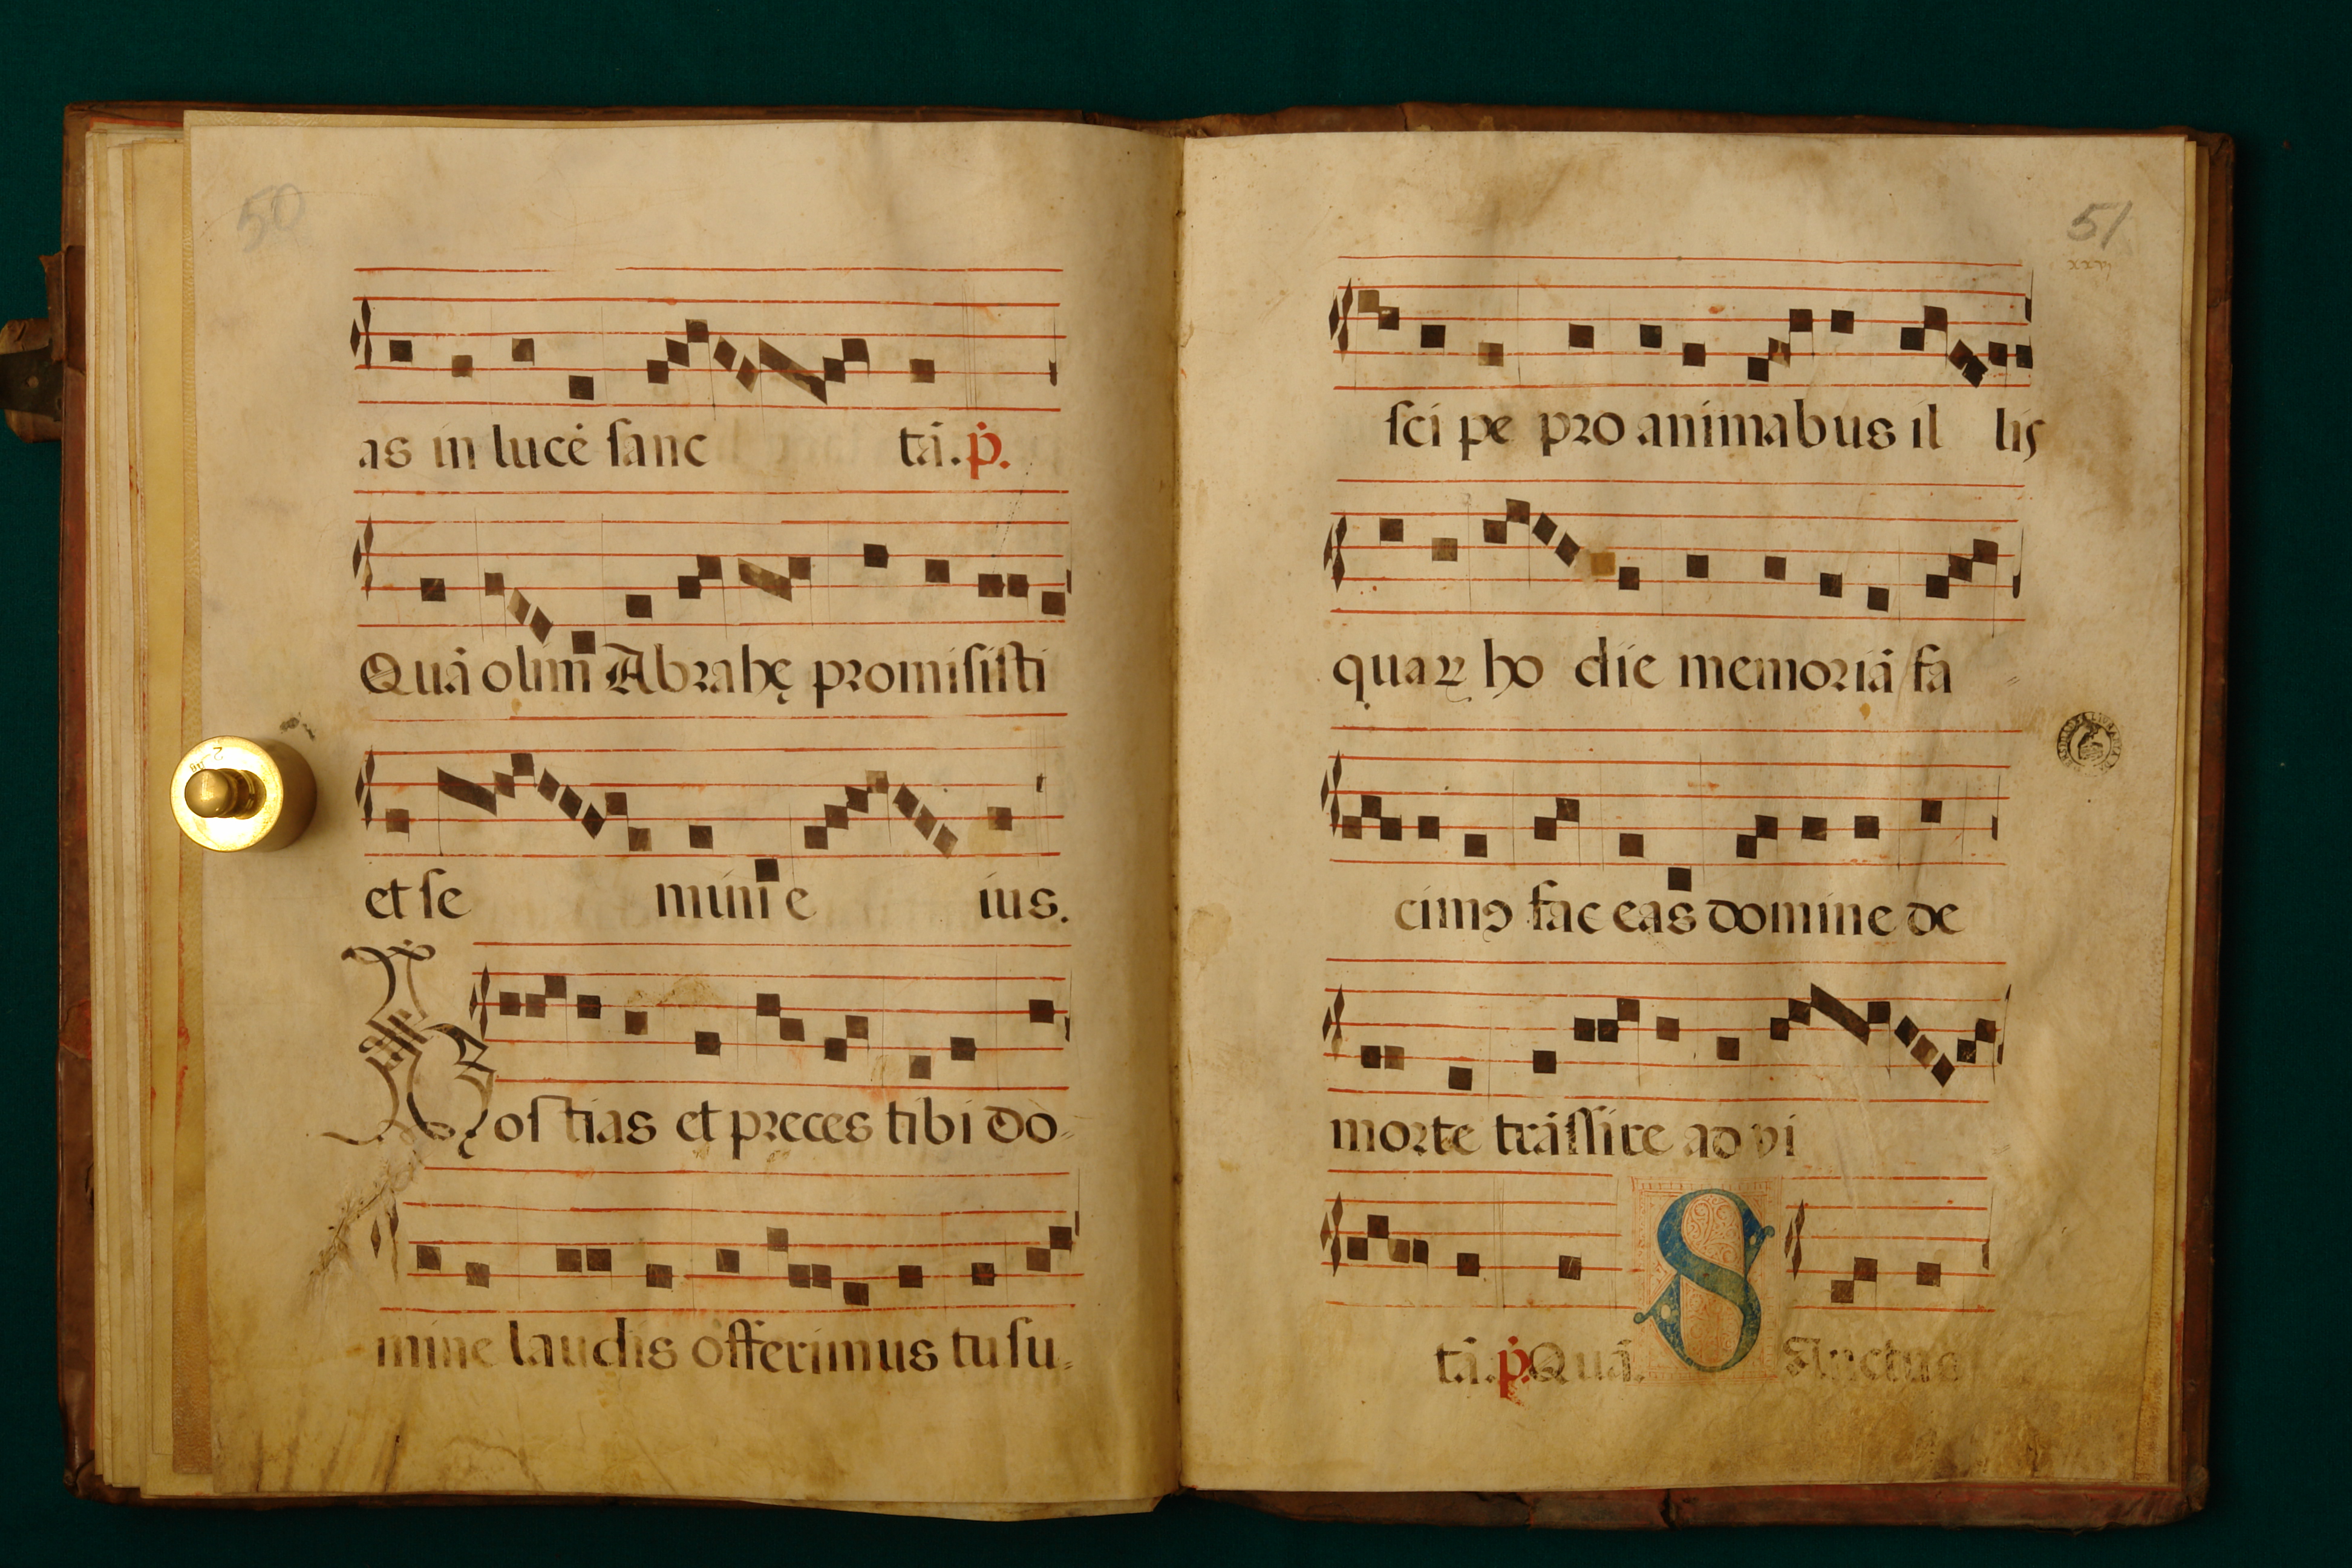 50
as in lucē sanc tā. p̄.
Quā olim Abrahę promisisti
et se mini e ius.
Hostias et preces tibi do-
mine laudis offerimus tu su-
51
xxvj
sci pe pro animabus il lis
quaꝝ ho die memoriā fa
cimꝯ fac eas domine de
morte trāssire ad vi
tā. p̄. Quā. Sanctus